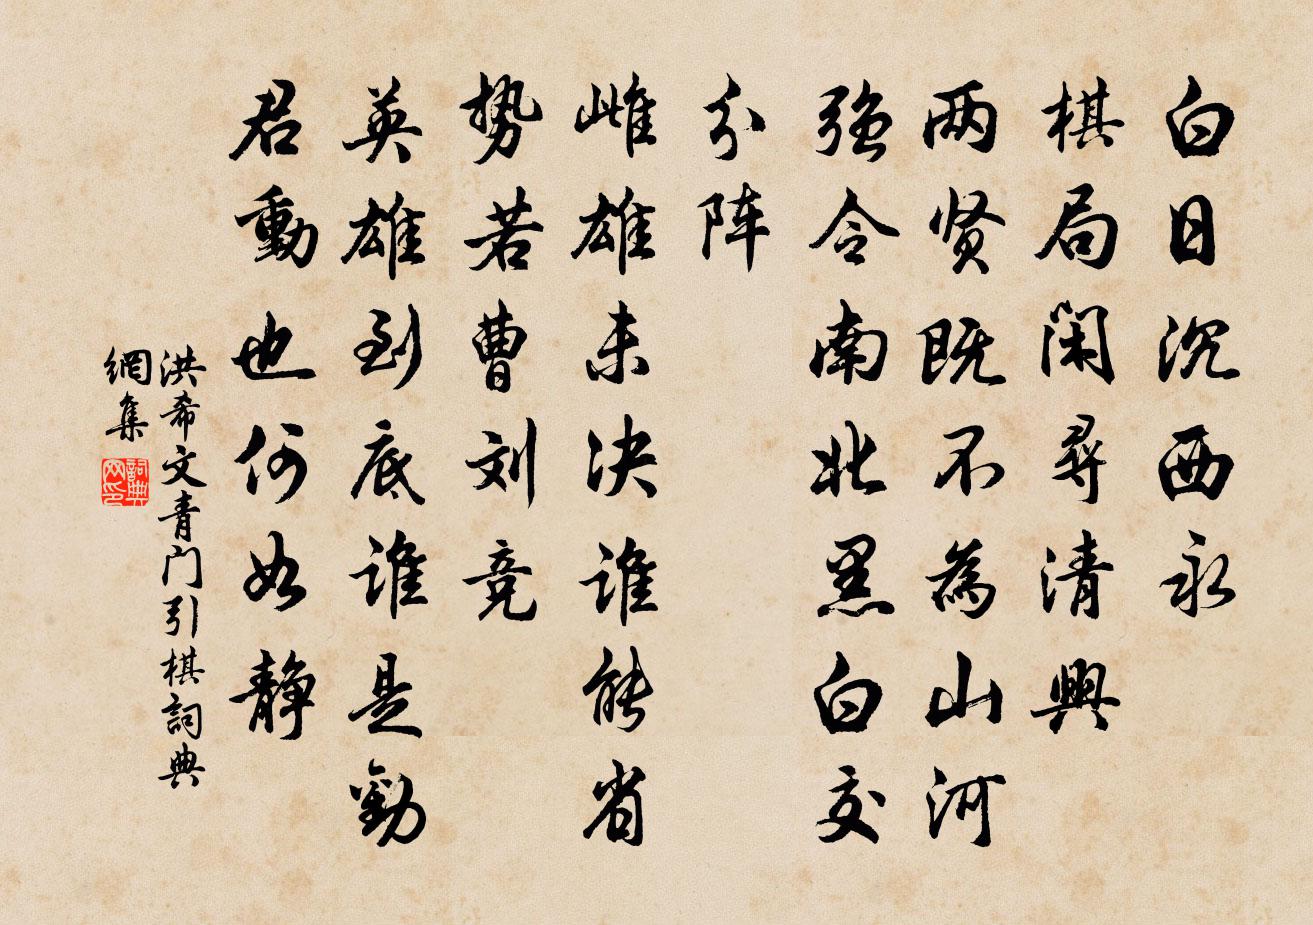 白日沉西永
棋局闲尋清興
两贤既不為山河
强令南北黑白交
分阵
雌雄未决谁能省
势若曹刘竞
英雄到底谁是勍
君動也何如静
洪希文青门引棋詞典
網集
詞典
网印